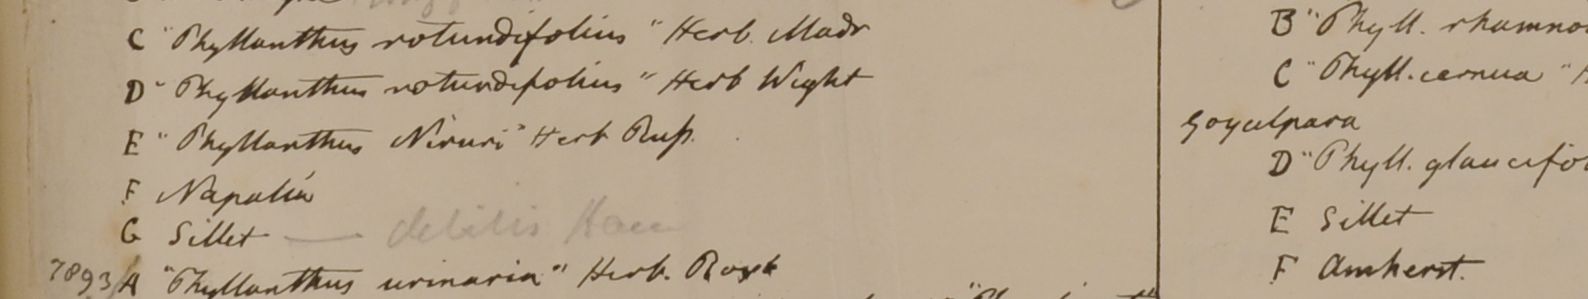 C "Phyllanthus rotundifolius" Herb. Madr
D "Phyllanthus rotundifolius" Herb Wight
E "Phyllanthus Niruri" Herb Russ.
F Napalia
G Sillet — debilis Ham
7893 A "Phyllanthus urinaria" Herb. Roxb
B "Phyll. rhamno
C "Phyll. cernua "H
Goyalpara
D "Phyll. glaucifo
E Sillet
F Amherst.